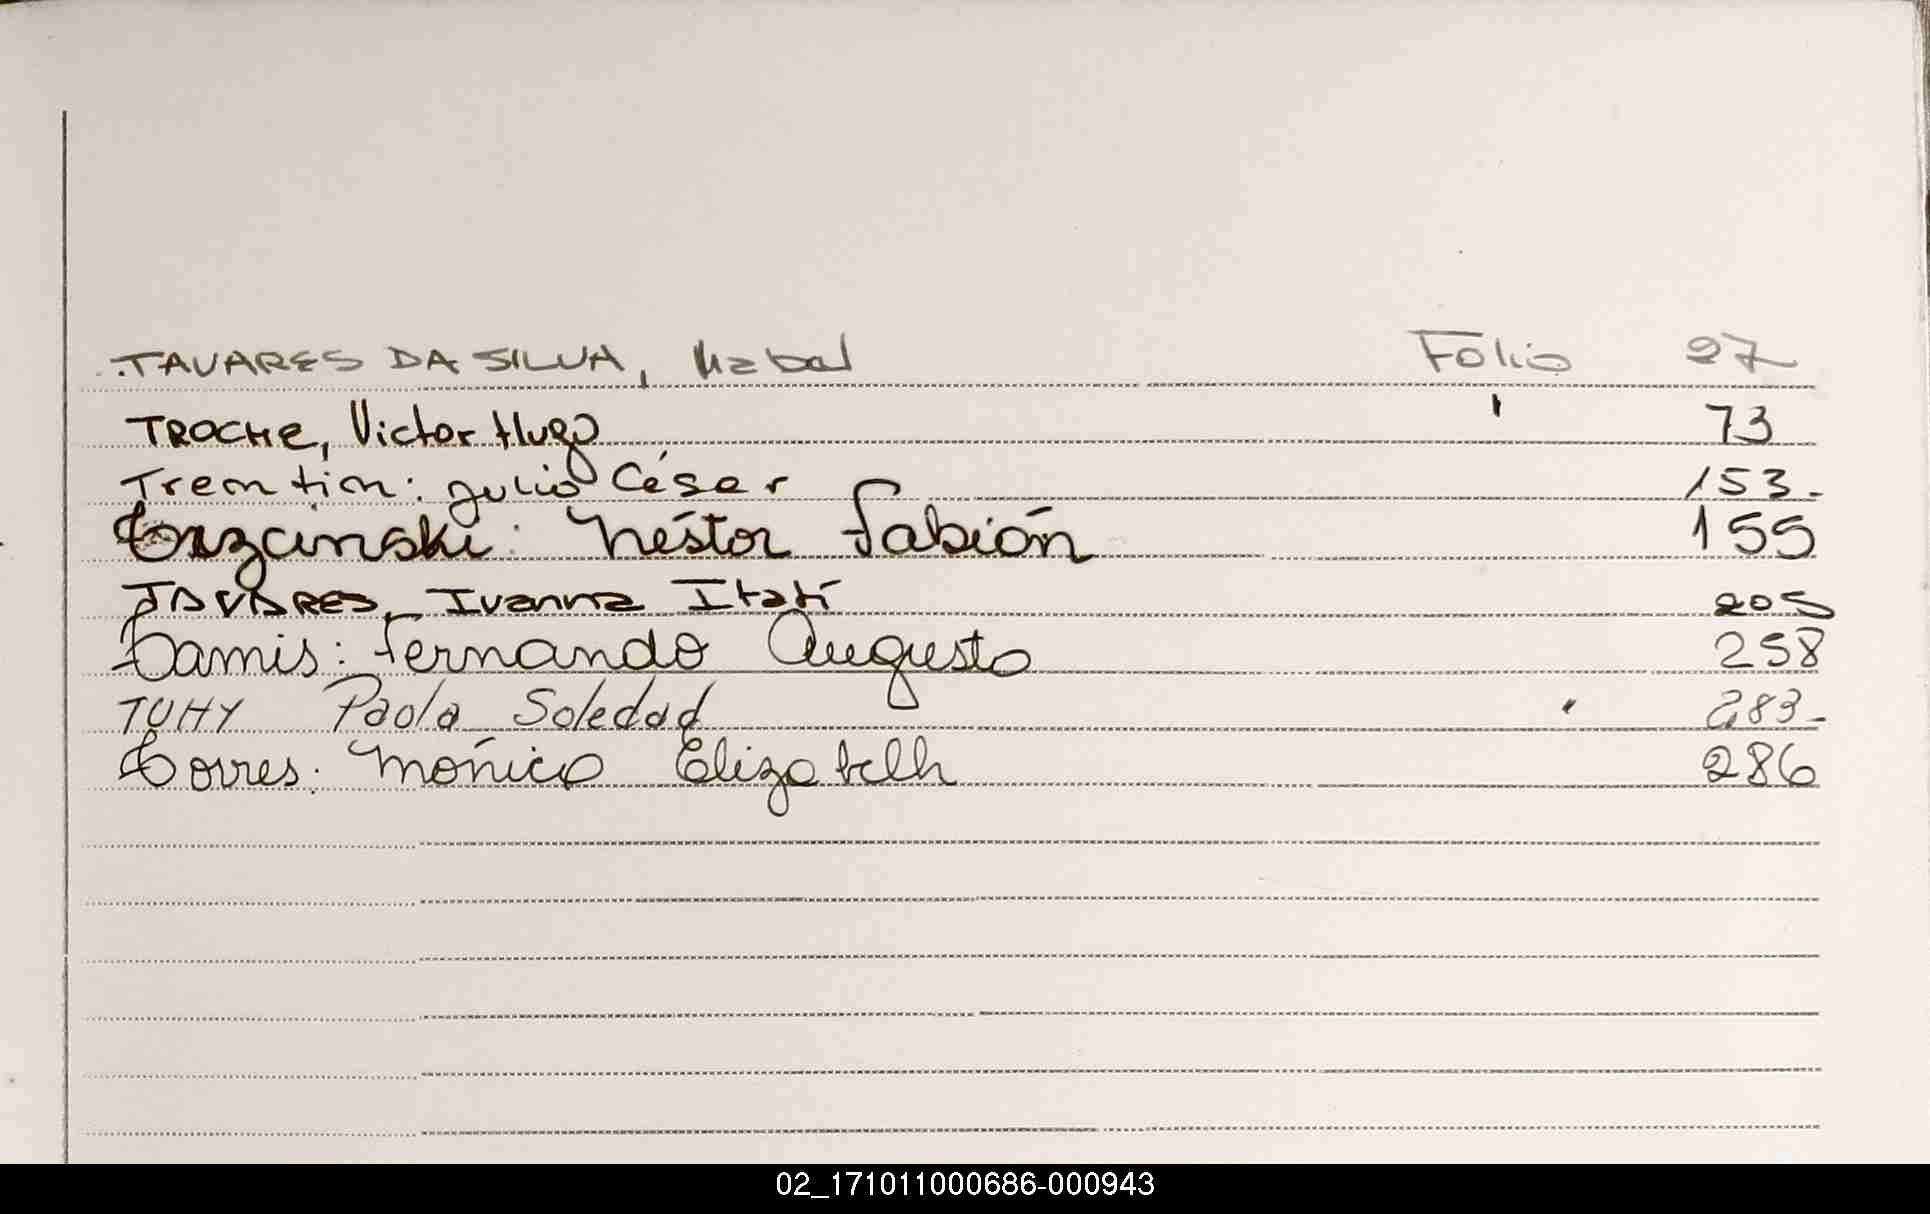 TAVARES DA SILVA, Mabel Folio 27
TROCHE, Victor Hugo ' 73
Trentin: Julio César 153.
Néstor Fabián 155
TAVARES, Ivanna Itatí 205
Tamis: Fernando Augusto 258
TUHY Paola Soledad " 283-
Torres: Mónica Elizabeth 286
02_171011000686-000943